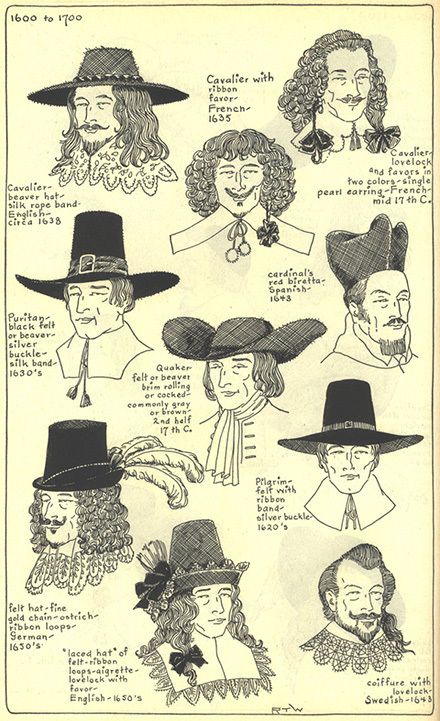 1600 to 1700
Cavalier with
ribbon
favor-
French-
1635
Cavalier-
lovelock
and favors in
two colors-single
pearl earring-French-
mid 17th C.
Cavalier-
beaver hat-
silk rope band-
English-
circa 1638
cardinal's
red biretta-
Spanish-
1643
Puritan-
black felt
or beaver-
silver
buckle-
silk band-
1630's
Quaker-
felt or beaver
brim rolling
or cocked-
commonly gray
or brown-
2nd half
17th C.
Pilgrim-
felt with
ribbon
band-
silver buckle-
1620's
felt hat-fine
gold chain-ostrich-
ribbon loops-
German-
1650's
"laced hat" of
felt-ribbon
loops-aigrette-
lovelock with
favor-
English-1650's
coiffure with
lovelock-
Swedish-1643
RTW